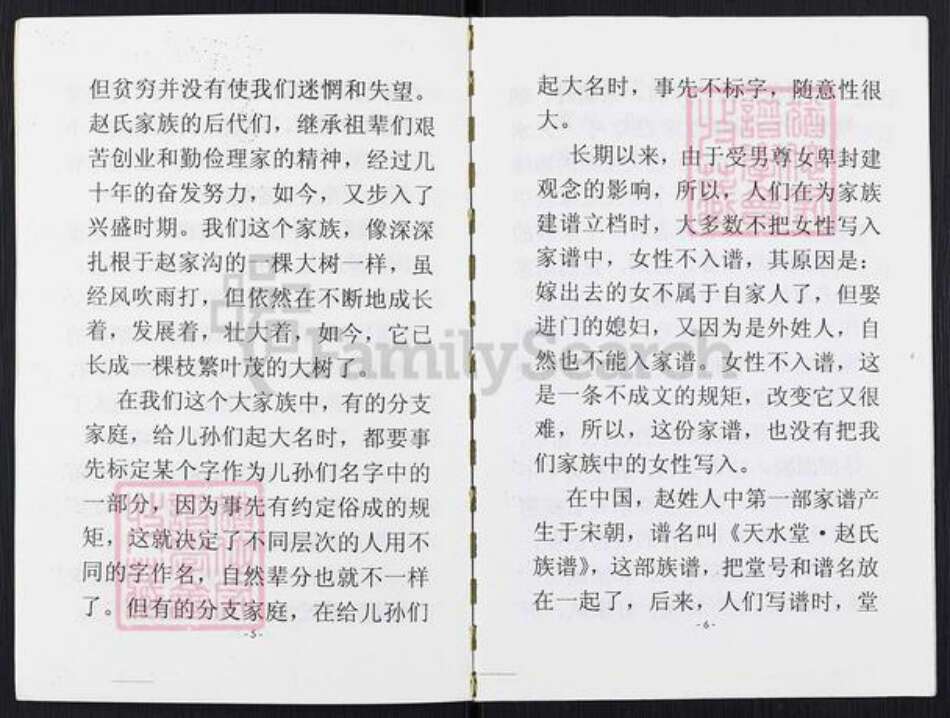 但贫穷并没有使我们迷惘和失望。
赵氏家族的后代们，继承祖辈们艰
苦创业和勤俭理家的精神，经过几
十年的奋发努力，如今，又步入了
兴盛时期。我们这个家族，像深深
扎根于赵家沟的一棵大树一样，虽
经风吹雨打，但依然在不断地成长
着，发展着，壮大着，如今，它已
长成一棵枝繁叶茂的大树了。
在我们这个大家族中，有的分支
家庭，给儿孙们起大名时，都要事
先标定某个字作为儿孙们名字中的
一部分，因为事先有约定俗成的规
矩，这就决定了不同层次的人用不
同的字作名，自然辈分也就不一样
了。但有的分支家庭，在给儿孙们
-5-
起大名时，事先不标字，随意性很
大。
长期以来，由于受男尊女卑封建
观念的影响，所以，人们在为家族
建谱立档时，大多数不把女性写入
家谱中，女性不入谱，其原因是：
嫁出去的女不属于自家人了，但娶
进门的媳妇，又因为是外姓人，自
然也不能入家谱。女性不入谱，这
是一条不成文的规矩，改变它又很
难，所以，这份家谱，也没有把我
们家族中的女性写入。
在中国，赵姓人中第一部家谱产
生于宋朝，谱名叫《天水堂·赵氏
族谱》，这部族谱，把堂号和谱名放
在一起了，后来，人们写谱时，堂
-6-
FamilySearch